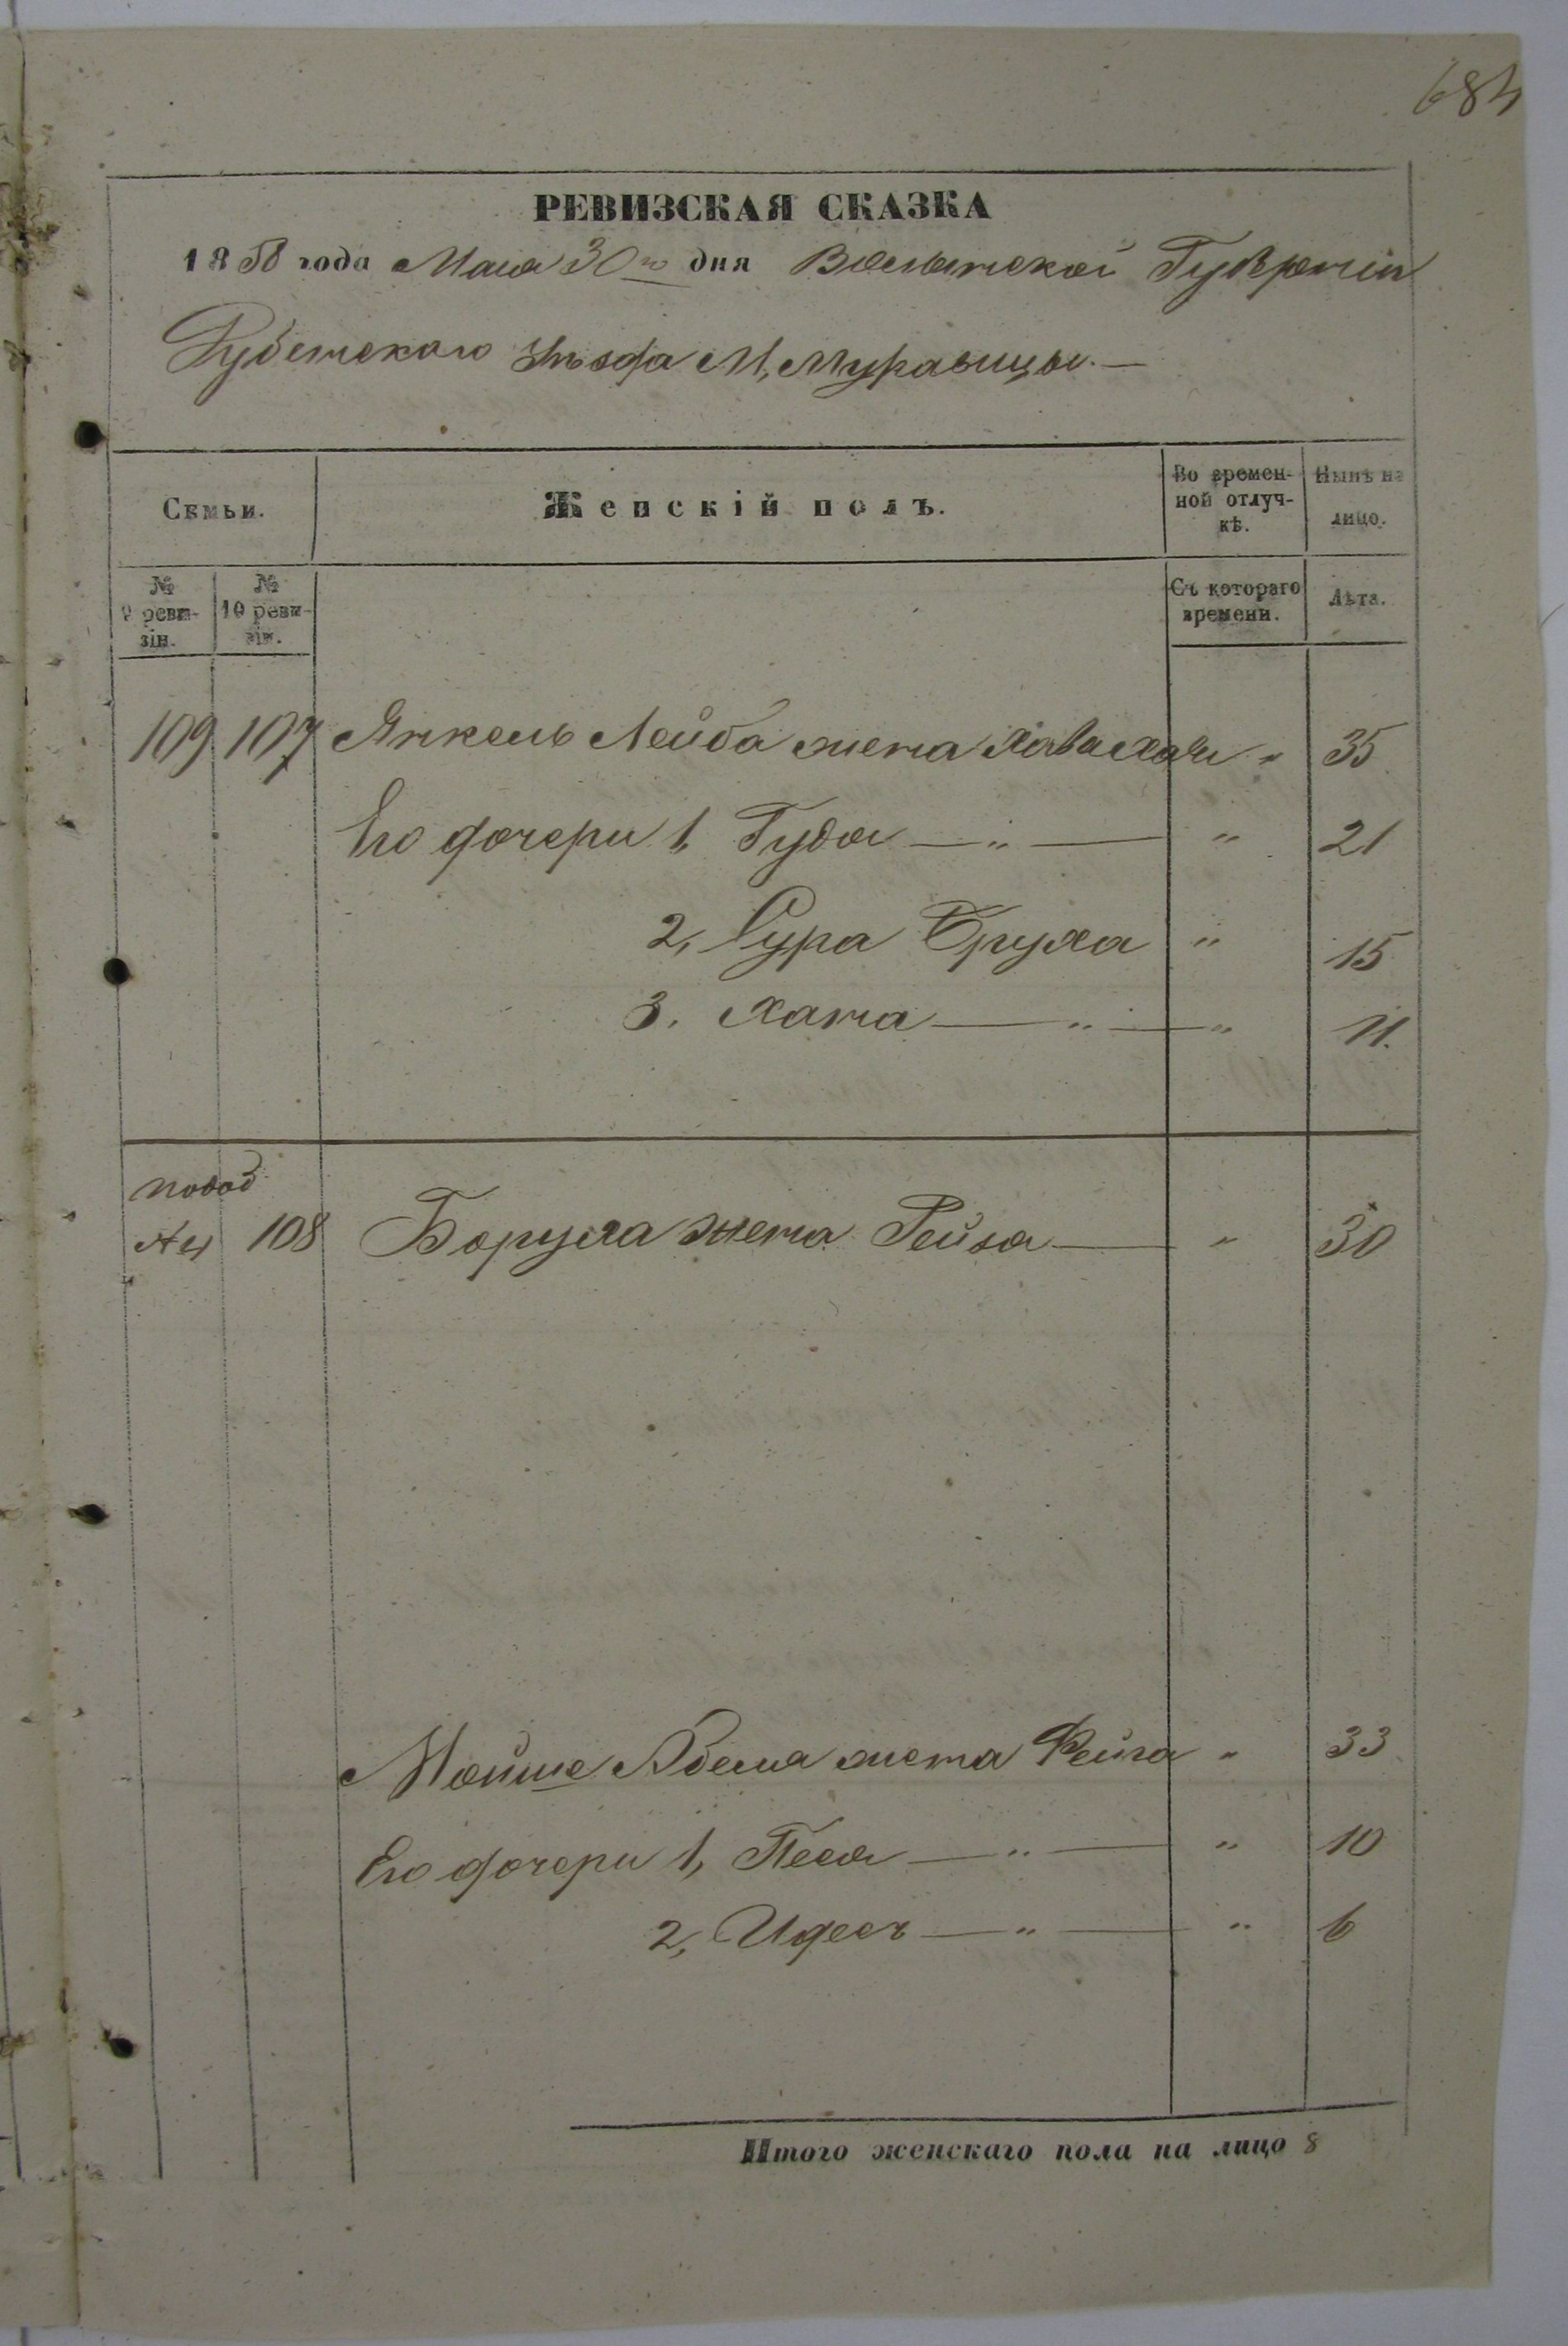 684
РЕВИЗСКАЯ СКАЗКА
1858 года Мая 30го дня Волынской Губерніи
Дубенскаго Уѣзда М, Муравицы.—
Семьи.
Женскій полъ.
Во времен-
ной отлуч-
кѣ.
Нынѣ на
лицо.
№
9 реви-
зіи.
№
10 реви-
зіи.
Съ котораго
времени.
Лѣта.
109 107 Янкель Лейба жена Хава " 35
Его дочери 1, Гуда — " — " 21
2, Сура Бруха " 15
3. Хана — " — " 11.
108 Боруха жена Рейза — " 30
Мойше жена Фейга " 33
Его дочери 1, Песя — " — " 10
2, Идесъ — " — " 6
Итого женскаго пола на лицо 8